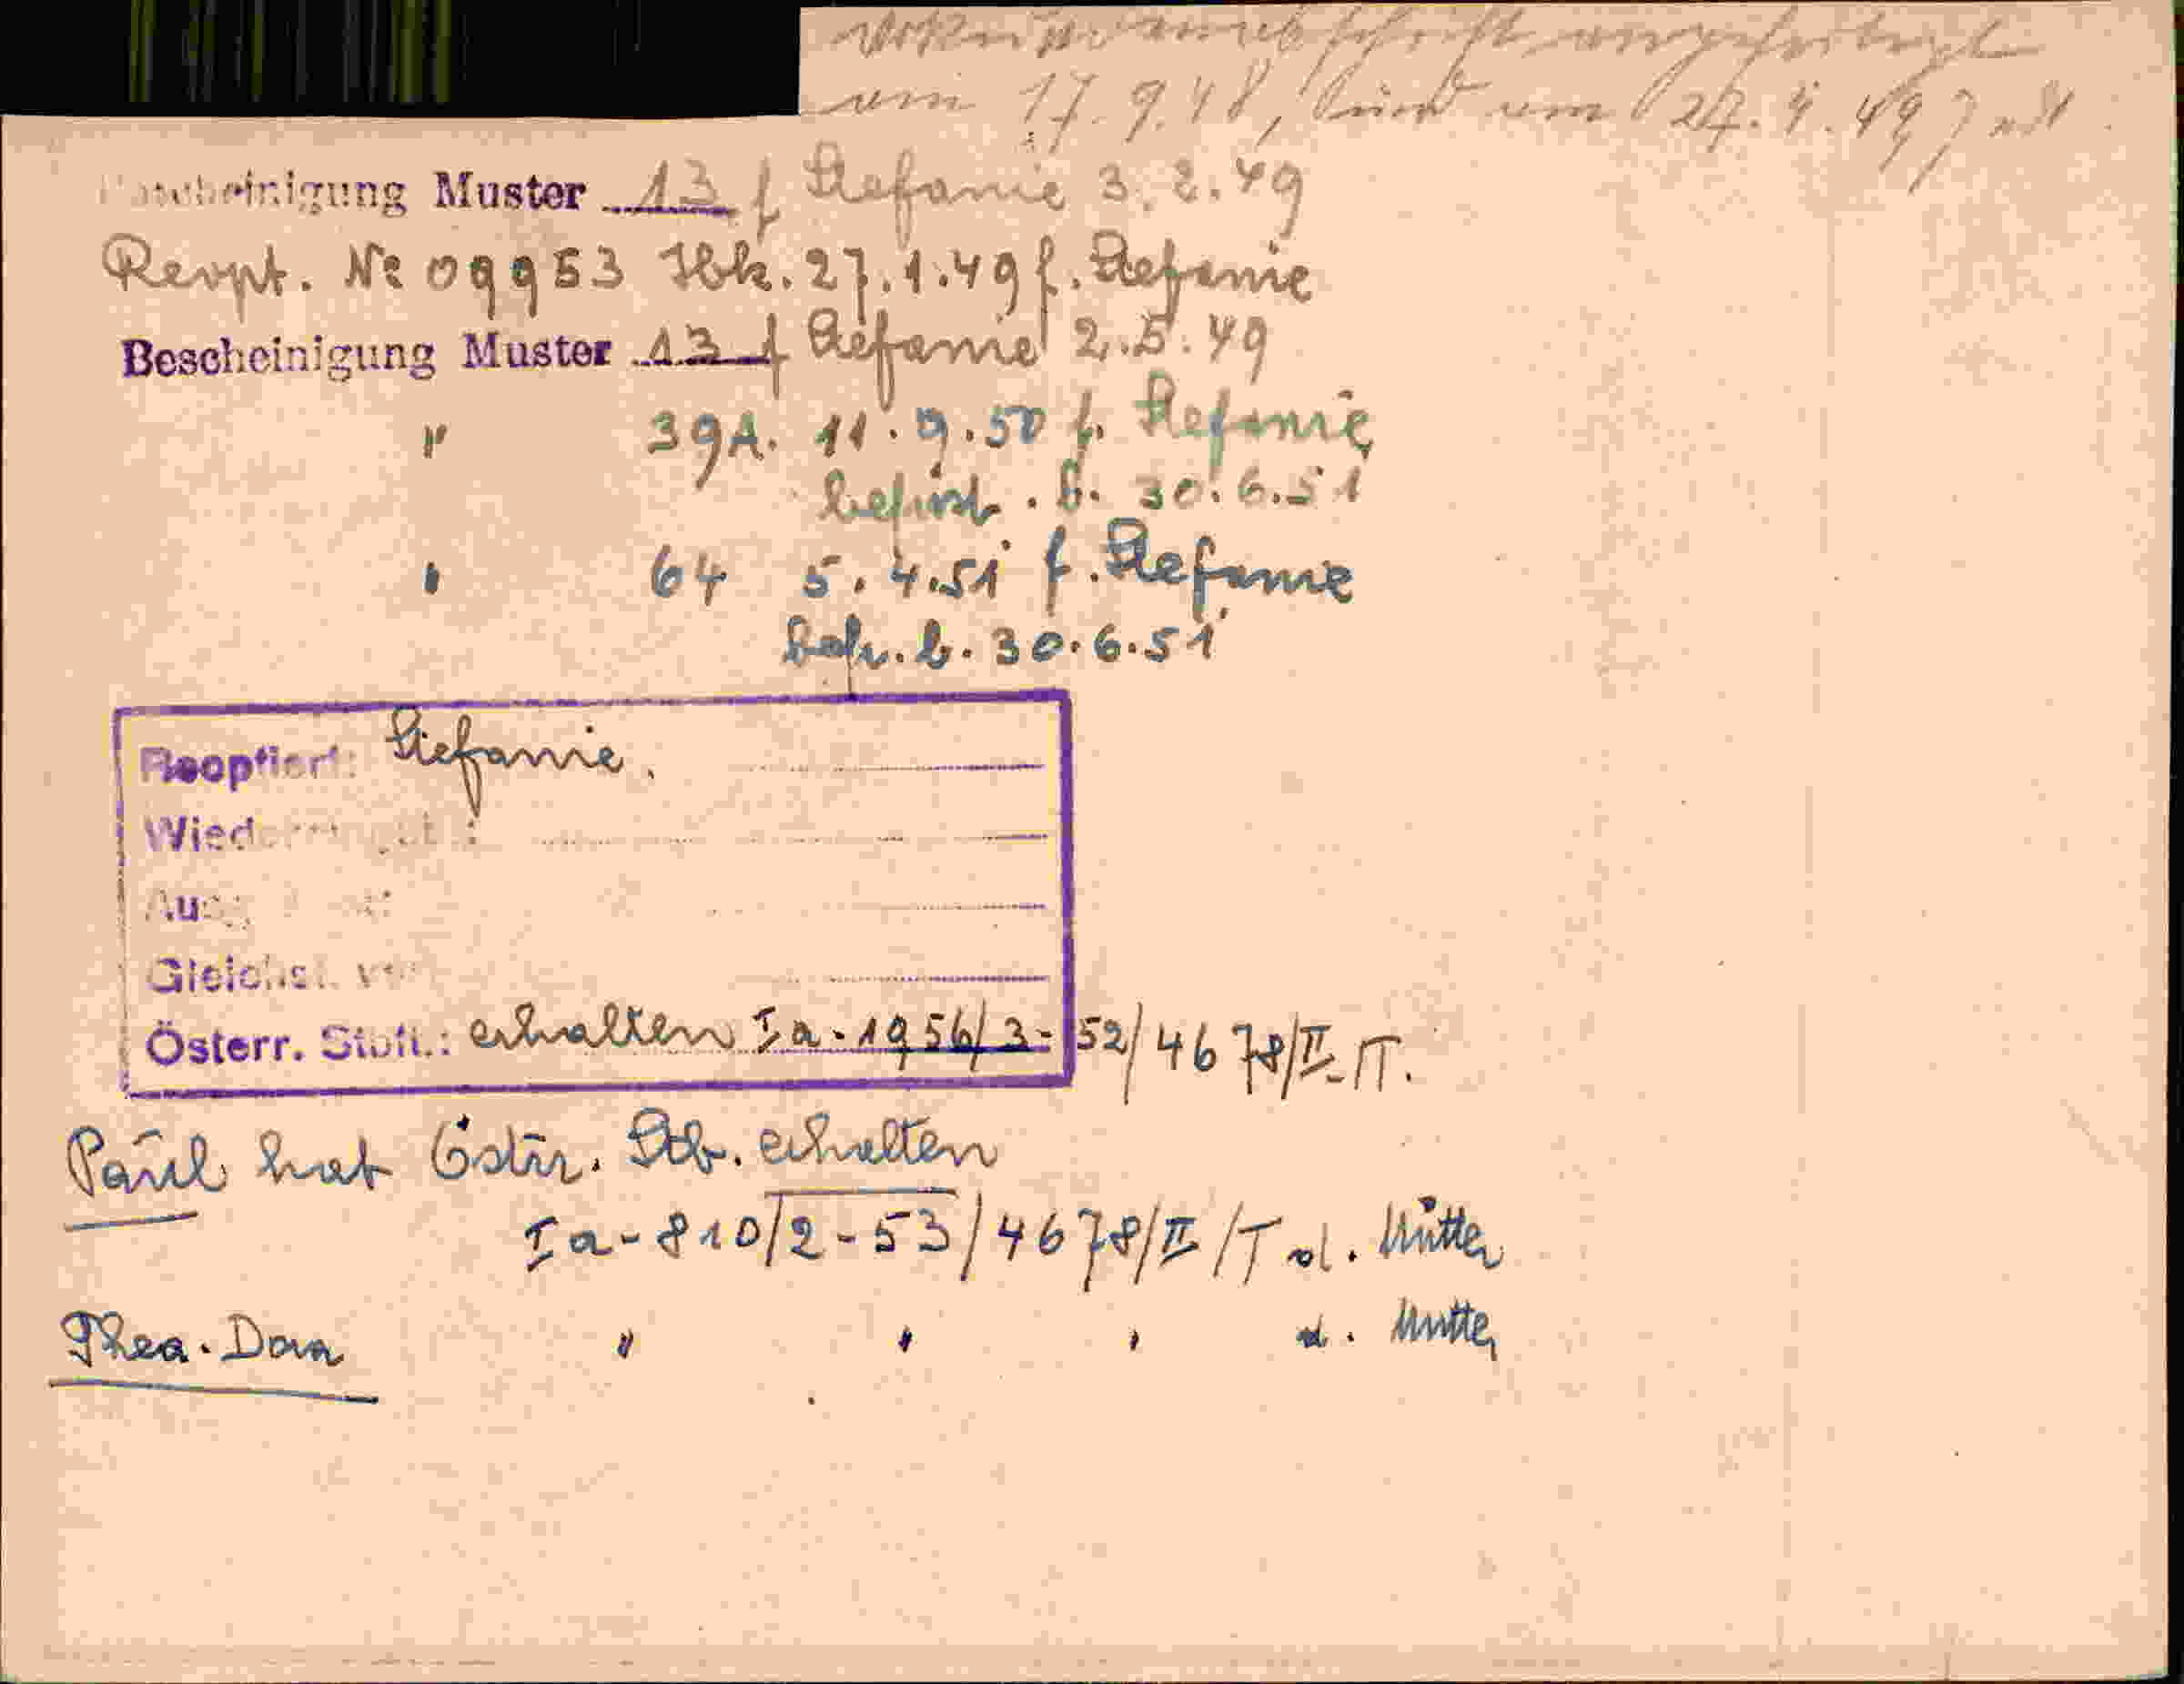 angefertigt
am 17.9.48, und am 27.4.49
Bescheinigung Muster 13 f Stefanie 3.2.49
Reopt. Nr 09953 Ibk. 27.1.49 f. Stefanie
Bescheinigung Muster 13 f Stefanie 2.5.49
" 39A. 11.9.50 f. Stefanie
befrist. b. 30.6.51
" 64 5.4.51 f. Stefanie
b. 30.6.51
Reoptiert: Stefanie.
Österr. Stbft.: erhalten Ia-1956/3-52/4678/II/T.
Paul hat Östr. Stb. erhalten
Ia-810/2-53/4678/II/T d. Mutter
Thea-Dora " " " d. Mutter